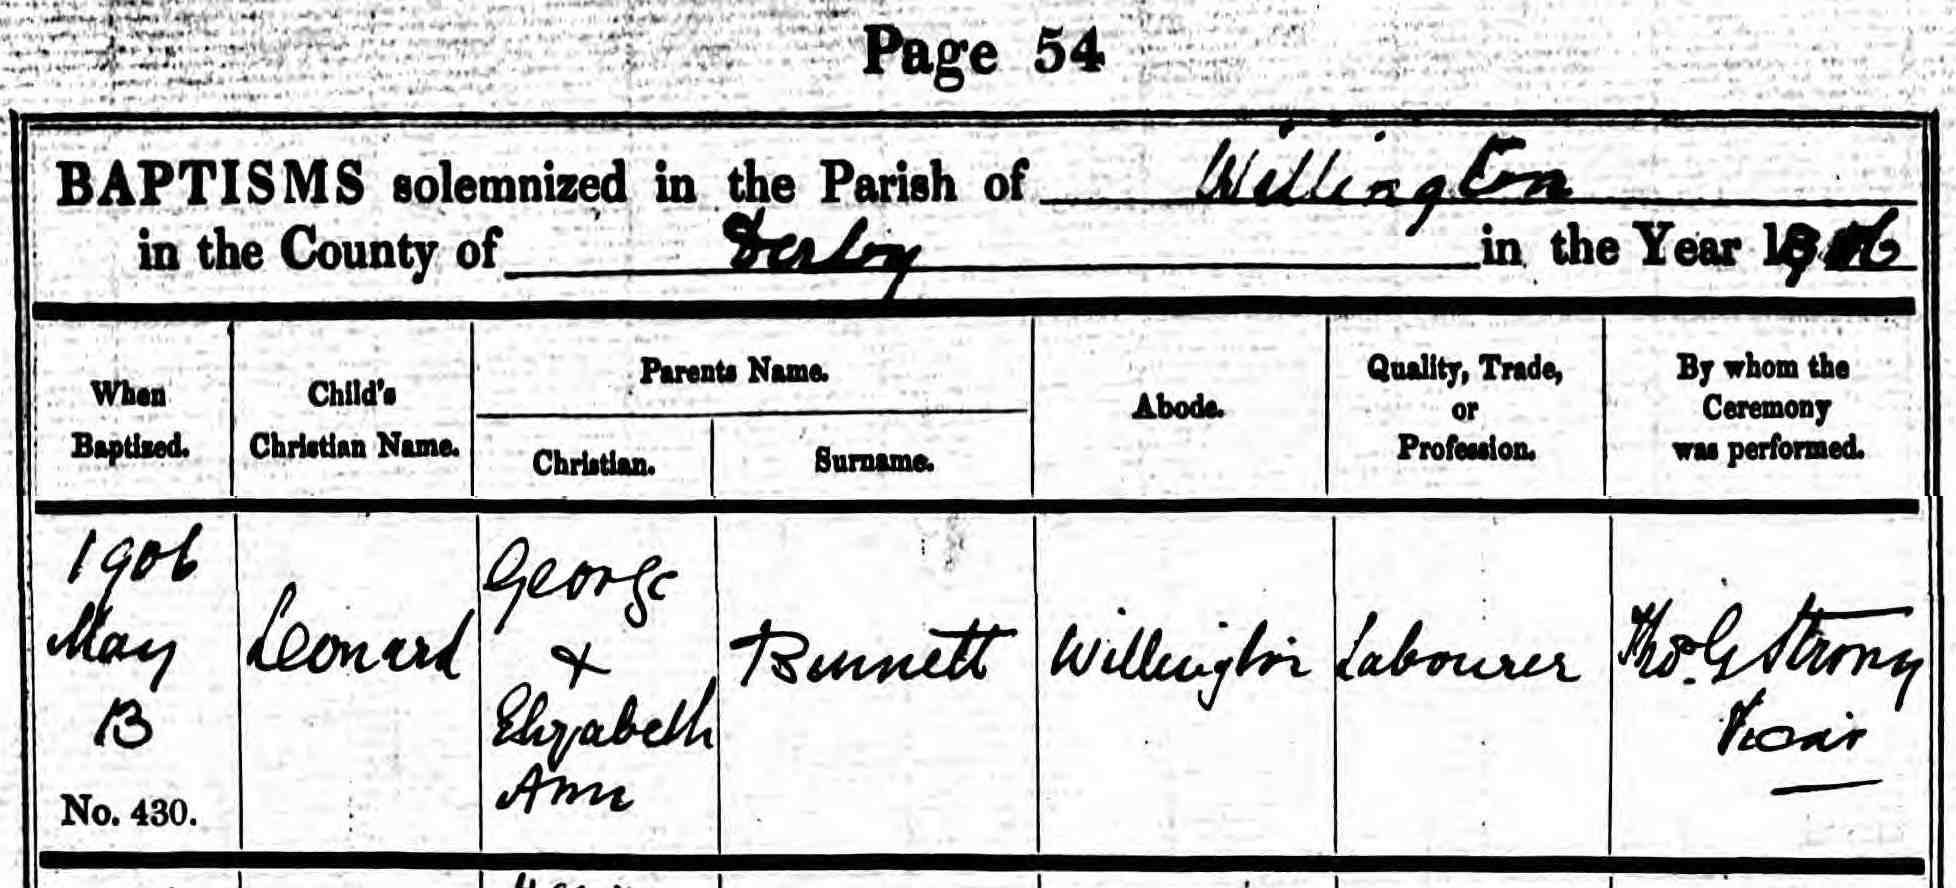 Page 54
BAPTISMS solemnized in the Parish of Willington
in the County of Derby in the Year 1906
When Baptized.
Child's Christian Name.
Parents Name.
Christian.
Surname.
Abode.
Quality, Trade, or Profession.
By whom the Ceremony was performed.
1906
May
13
No. 430.
Leonard
George
+
Elizabeth
Ann
Bunnett
Willington
Labourer
Thos. G Strong
Vicar